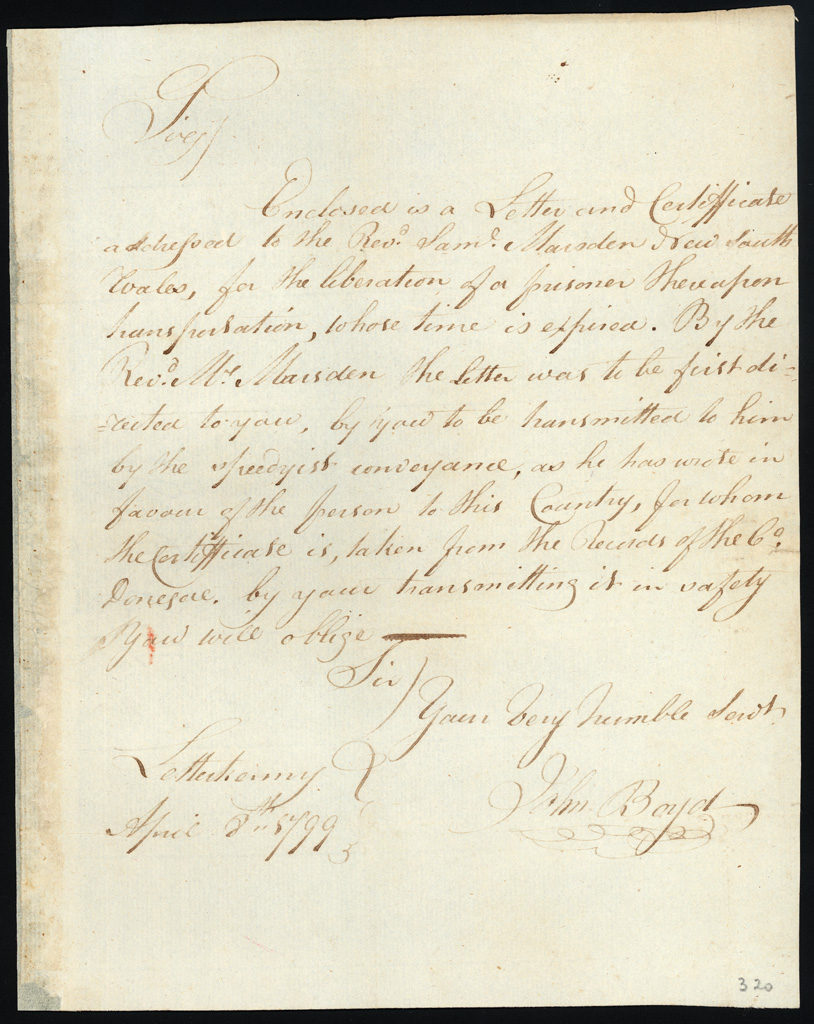 Sir,
Enclosed is a Letter and Certifficate
addressed to the Revd. Saml. Marsden New South
Wales, for the liberation of a prisoner thereupon
transportation, whose time is expired. By the
Revd. Mr. Marsden the letter was to be first di-
-rected to you, by you to be transmitted to him
by the speedyist conveyance, as he has wrote in
favour of the person to this Country, for whom
the Certifficate is, taken from the Records of the Co.
Donegal. by your transmitting it in safety
You will oblige
Sir
Your very humble Servt.
Letterkenny
April 8th 1799
John Boyd
320